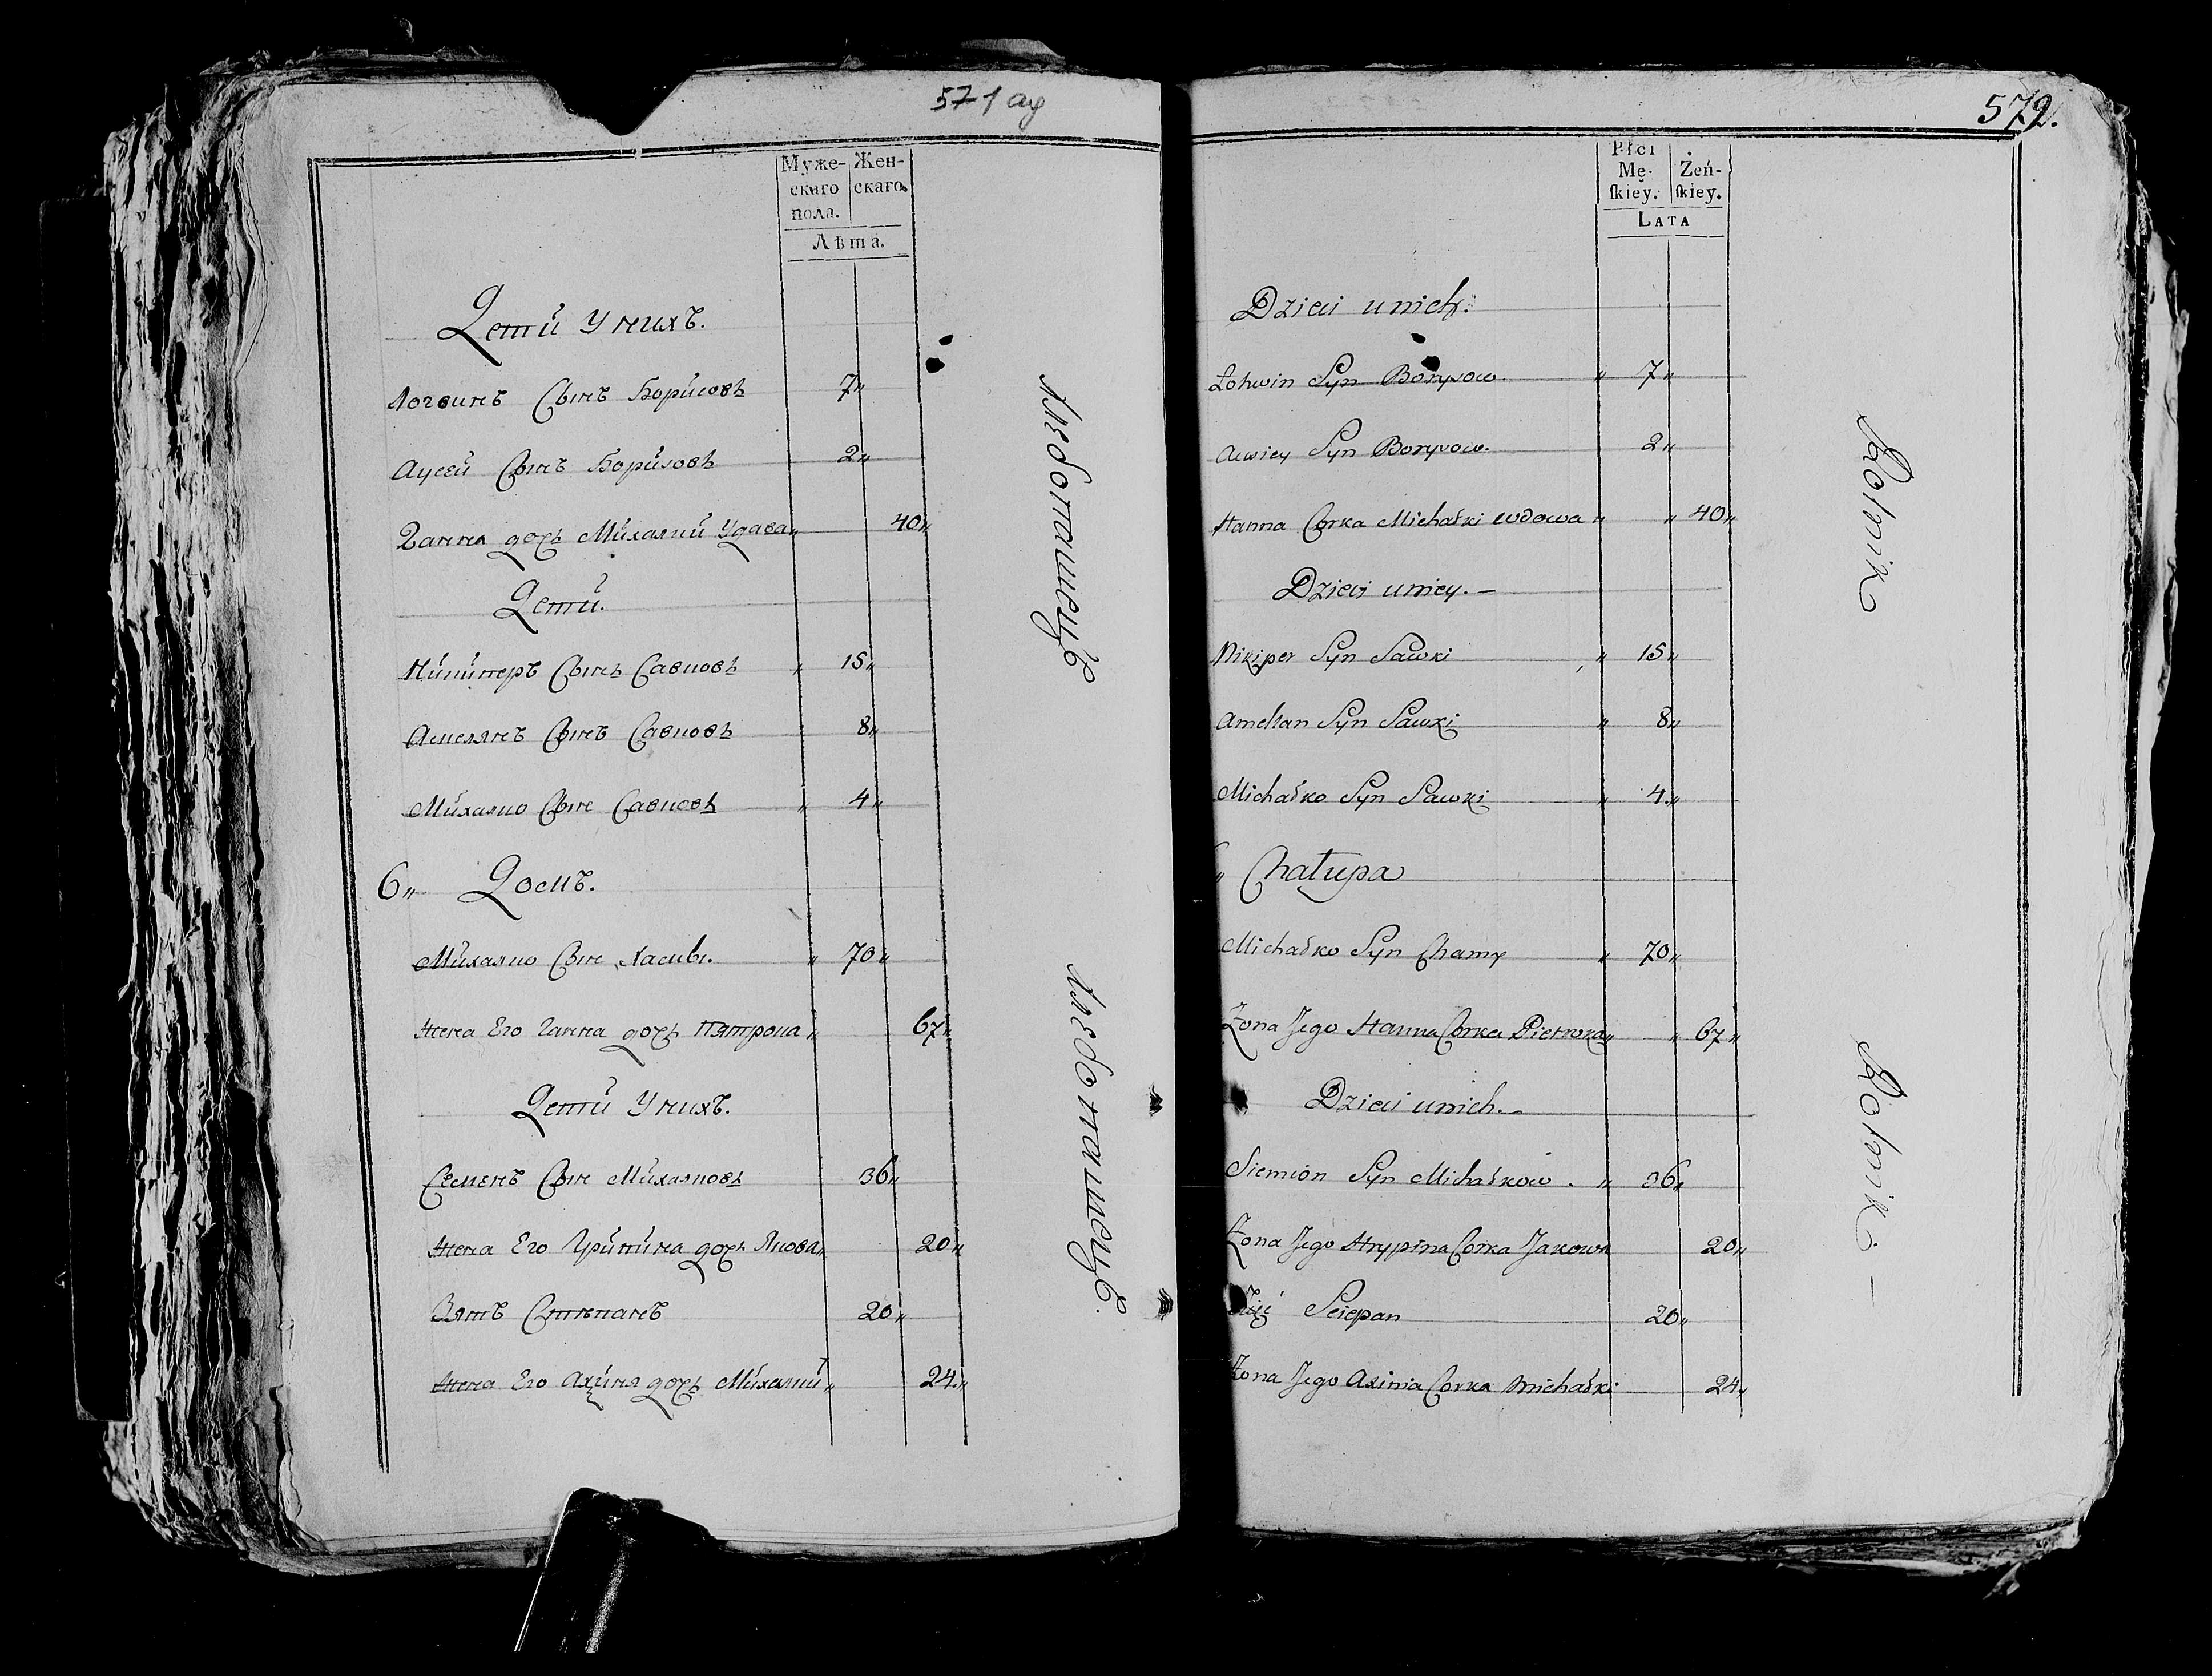 571 ау
Муже- Жен-
скаго скаго.
пола.
Лѣта.
Дети У нихъ.
Логвинъ Сынъ Борисовъ 7„
Аусей Сынъ Борисовъ 2„
Ганна дочь Михалки Удава„ 40„
Дети.
Никиперъ Сынъ Савковъ „ 15„
Амелянъ Сынъ Савковъ 8„
Михалко Сын Савковъ „ 4„
6„ Домъ.
Михалко Сын Хамы. „ 70„
Жена Его Ганна дочь Пятрока „ 67„
Дети У нихъ.
Семенъ Сын Михалковъ 36„
Жена Его Грипина дочь Якова„ 20„
Зять Стѣпанъ 20„
Жена Его Ахиня дочь Михалки„ 24„
572.
Płci
Mę- Żeń-
skiey. skiey.
LATA
Dzieci unich.
Łohwin Syn Borysow. „ 7„
Auwiey Syn Borysow. 2„
Hanna Corka Michałki wdowa „ „ 40„
Dzieci uniey. —
Nikiper Syn Sawki „ 15„
Amelian Syn Sawki „ 8„
Michałko Syn Sawki „ 4„
„ Chałupa
Michałko Syn Chamy „ 70„
Żona Jego Hanna Corka Pietroka„ „ 67„
Dzieci unich. —
Siemion Syn Michałkow. „ 36„
Żona Jego Hrypina Corka Jakowa 20„
Sciepan 20„
Żona Jego Axinia Corka Michałki 24„
Rolnik
Rolnik. —